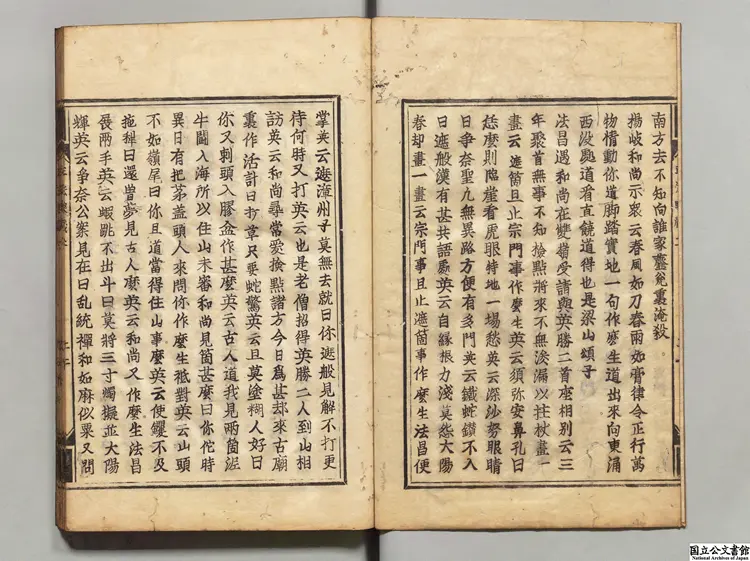 南方去不知向誰家虀瓮裏淹殺
楊岐和尚示衆云春風如刀春雨如膏律令正行萬
物情動你道脚踏實地一句作麽生道出來向東涌
西没處道看直饒道得也是梁山頌子
法昌遇和尚在雙嶺受請與英勝二首座相別云三
年聚首無事不知撿點將來不無滲漏以拄杖畫一
畫云遮箇且止宗門事作麽生英云須弥安鼻孔曰
恁麽則臨崖看虎眼特地一場愁英云深沙努眼睛
曰爭奈聖凡無異路方便有多門英云鐵蛇鑽不入
曰遮般漢有甚共語處英云自縁根力淺莫怨太陽
春却畫一畫云宗門事且止遮箇事作麽生法昌便
掌英云遮漳州子莫無去就曰你遮般見解不打更
待何時又打英云也是老僧招得英勝二人到山相
訪英云和尚尋常愛撿點諸方今日爲甚却來古廟
裏作活計曰打草只要蛇驚英云且莫塗糊人好曰
你又刺頭入膠盆作甚麽英云古人道我見兩箇泥
牛鬪入海所以住山未審和尚見箇甚麽曰你佗時
異日有把茅盖頭人來問你作麽生祗對英云山頭
不如嶺尾曰你且道當得住山事麽英云使钁不及
拖犂曰還曽夢見古人麽英云和尚又作麽生法昌
展兩手英云蝦跳不出斗曰莫將三寸燭擬並太陽
輝英云爭奈公案見在曰乱統禪和如麻似粟又問
国立公文書館
National Archives of Japan